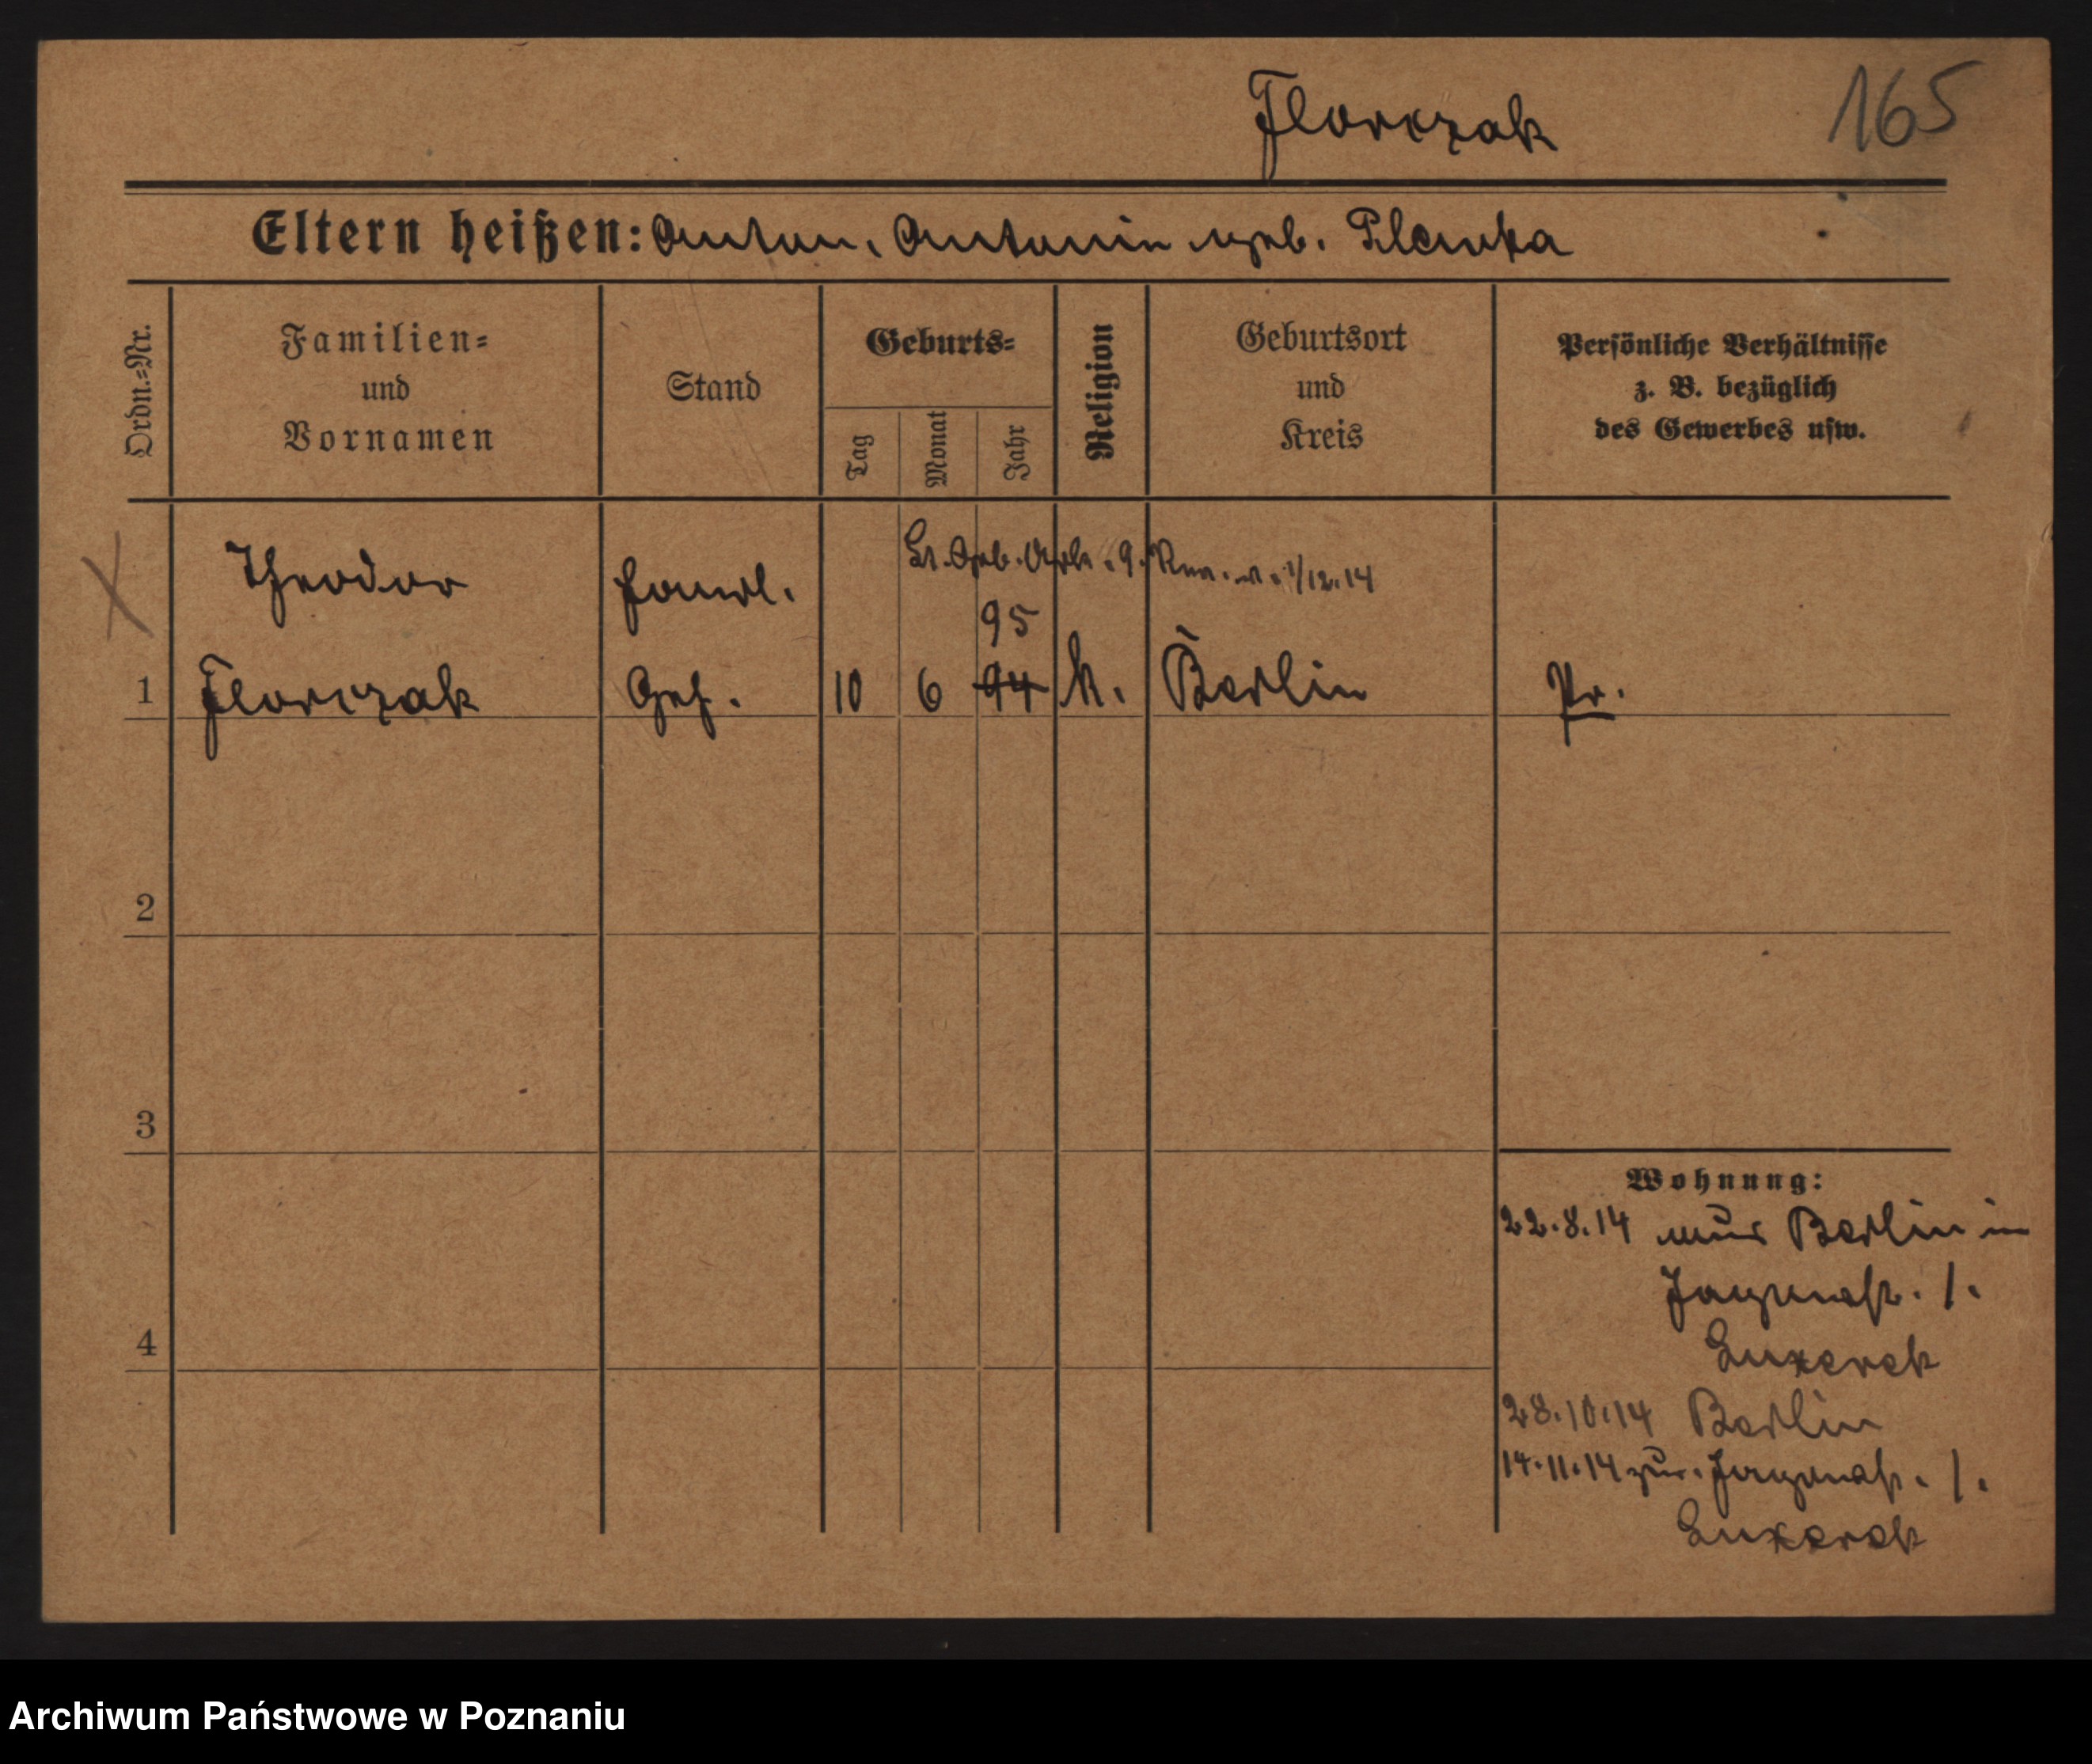 Florczak 165
Eltern heißen: Anton, Antonin geb. Plewka
Ordn.=Nr.
Familien=
und
Vornamen
Stand
Geburts=
Tag
Monat
Jahr
Religion
Geburtsort
und
Kreis
Persönliche Verhältnisse
z. B. bezüglich
des Gewerbes usw.
Theodor
Handl.
v. 1/12.14
95
1 Florczak Geh. 10 6 94 k. Berlin Pr.
2
3
4
Wohnung:
22.8.14 aus Berlin in
1.
28.10.14 Berlin
14.11.14 zur. 1.
Archiwum Państwowe w Poznaniu